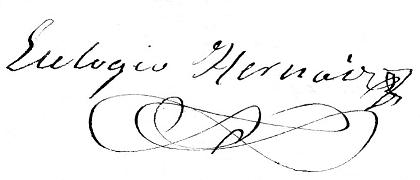 Eulogio Hernáiz